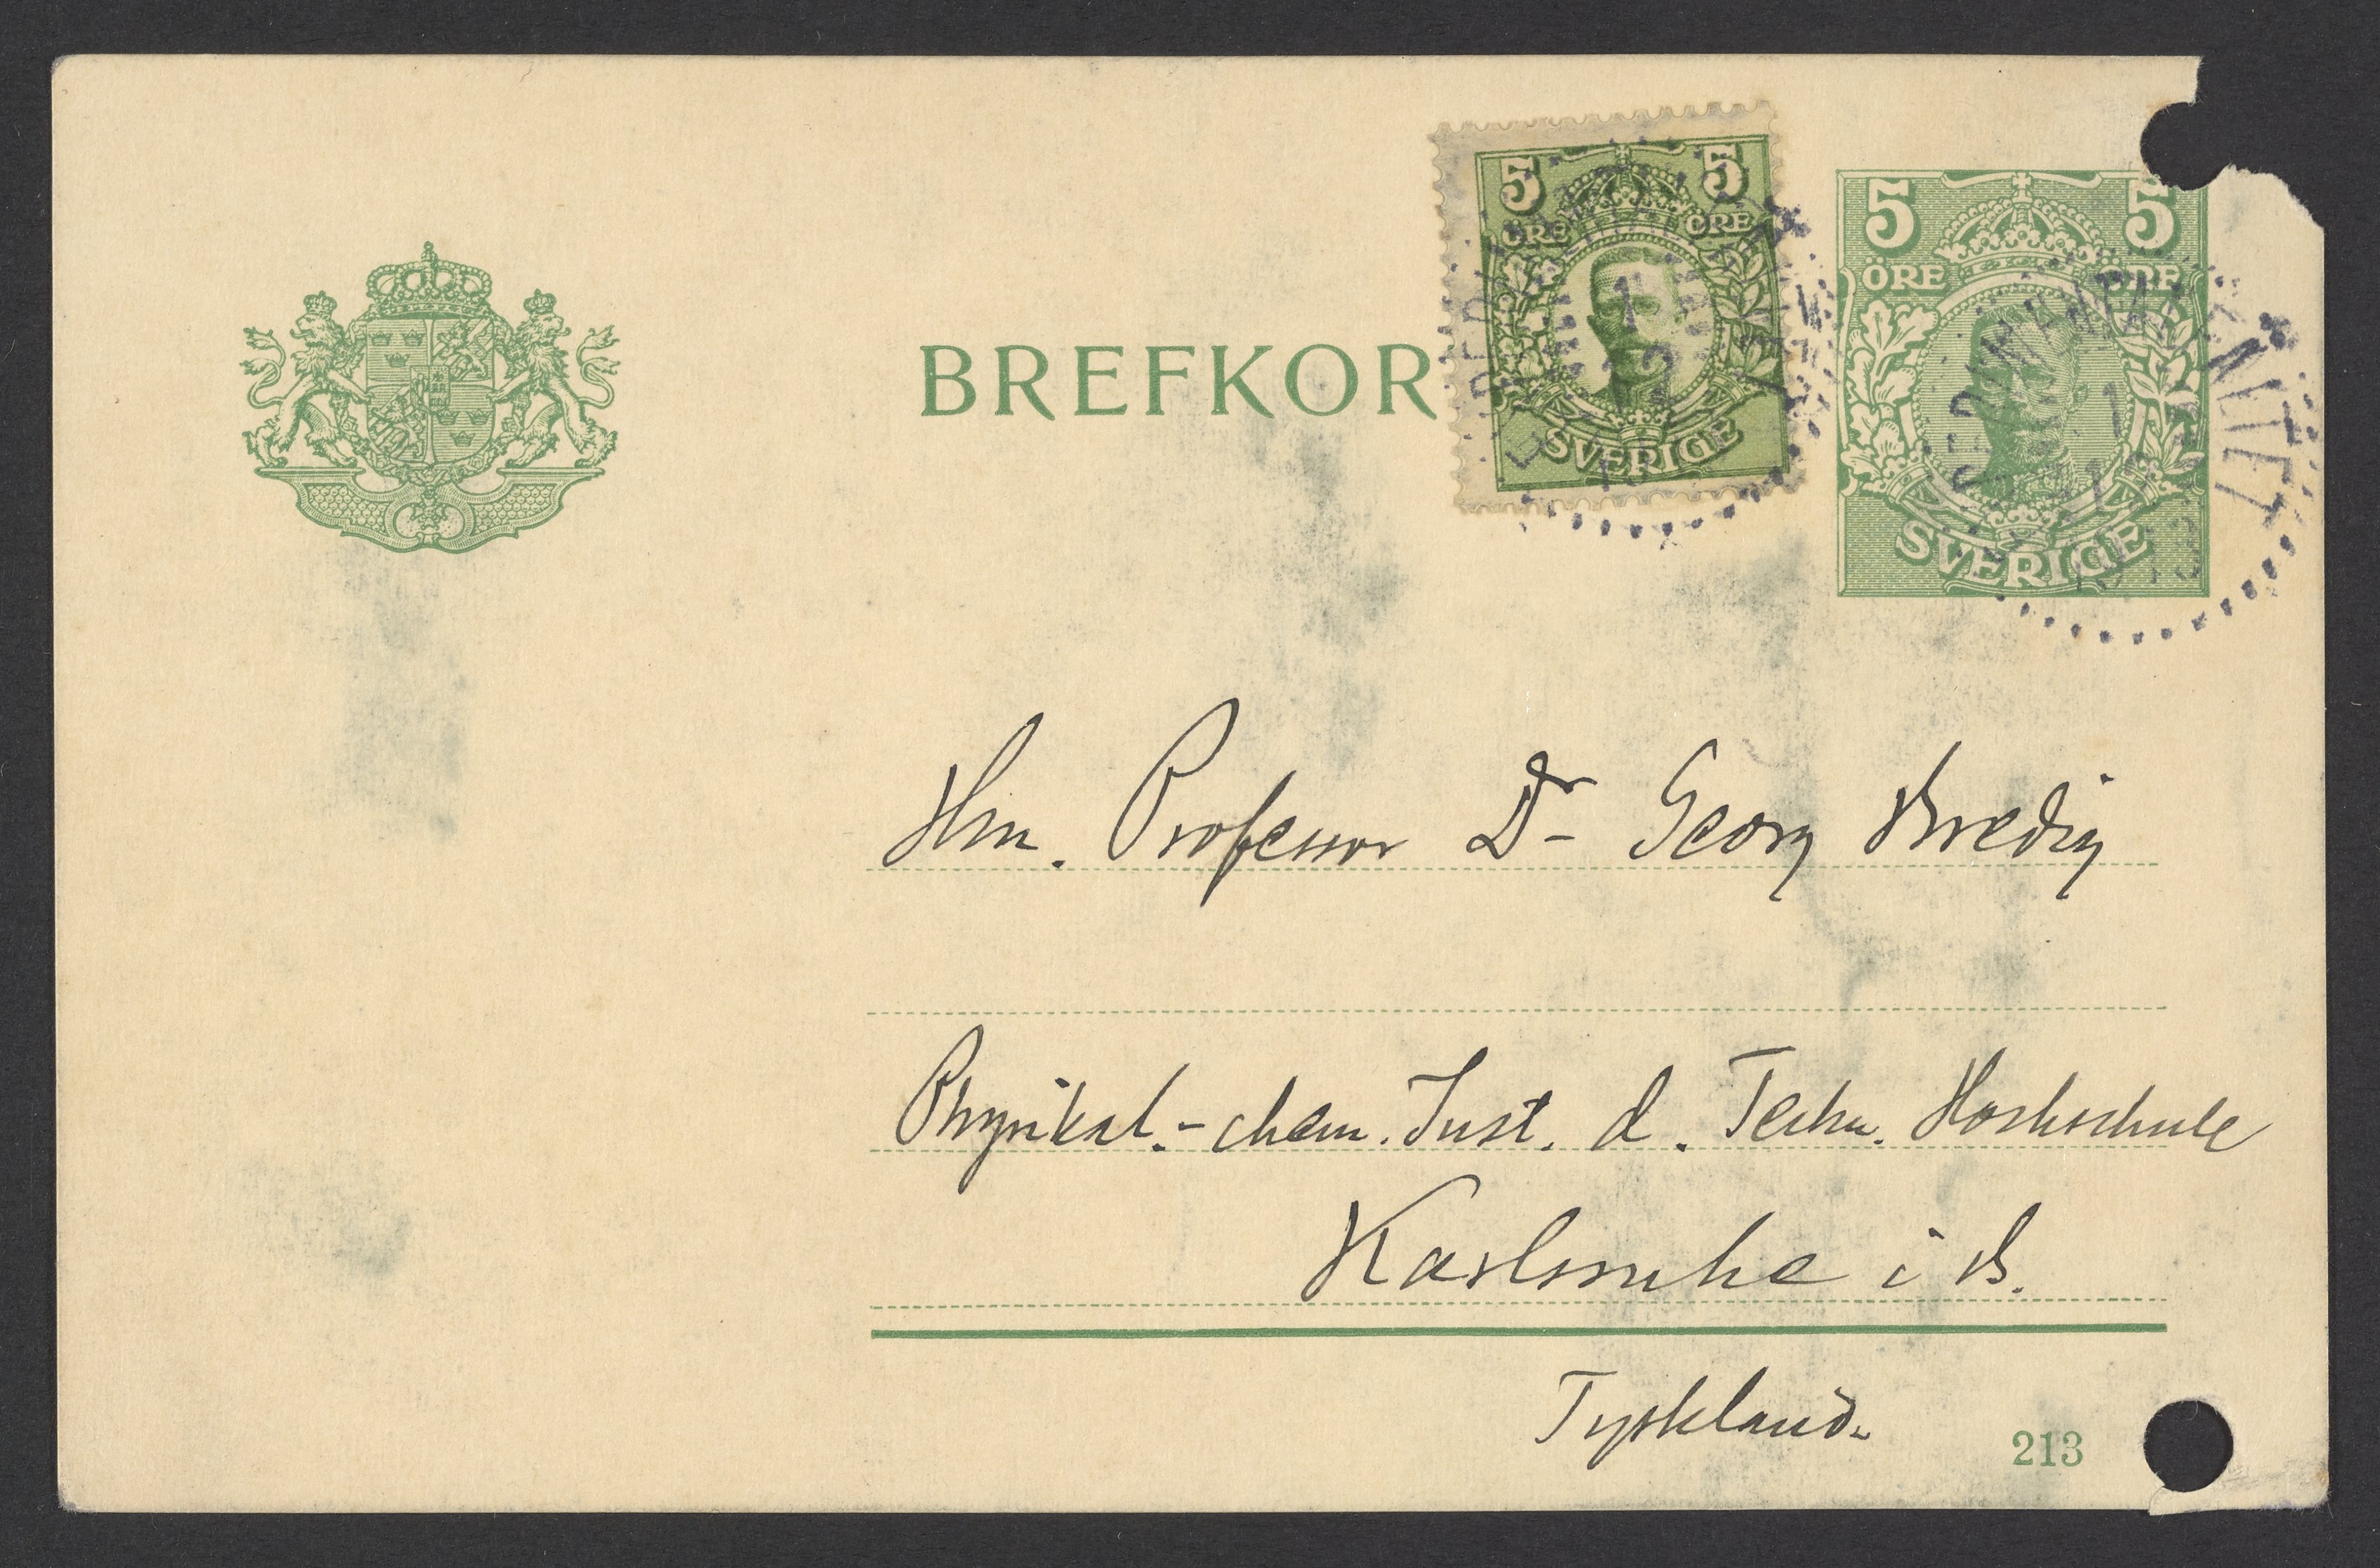 BREFKOR
5 5
ÖRE ÖRE
SVERIGE
5 5
ÖRE ÖRE
SVERIGE
1 12
1913
Hrn. Professor Dr Georg Bredig
Physikal.-chem. Inst. d. Techn. Hochschule
Karlsruhe i B.
Tyskland.
213